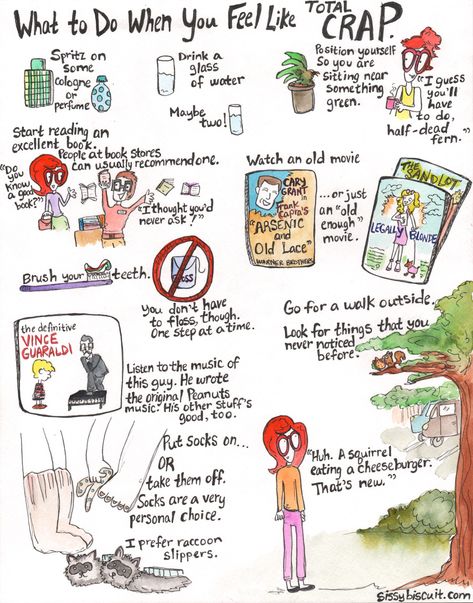 What to Do When You Feel Like TOTAL CRAP.
Spritz on
some
cologne
or
perfume
Drink a
glass
of water
Maybe
two!
Position yourself
So you are
sitting near
something
green.
"I guess
you'll
have
to do,
half-dead
fern."
Start reading an
excellent book.
People at book stores
can usually recommend one.
"Do you
know
a good
book?"
"I thought you'd
never ask!"
Watch an old movie
CARY
GRANT
in
Frank
Capra's
"ARSENIC
and
Old Lace"
WARNER BROTHERS
...or just
an "old
enough"
movie.
THE SANDLOT
LEGALLY BLONDE
Brush your teeth.
FLOSS
You don't have
to floss, though.
One step at a time.
the definitive
VINCE
GUARALDI
Listen to the music of
this guy. He wrote
the original Peanuts
music. His other stuff's
good, too.
Go for a walk outside.
Look for things that you
never noticed
before.
Put socks on...
OR
take them off.
Socks are a very
personal choice.
I prefer raccoon
slippers.
"Huh. A squirrel
eating a cheeseburger.
That's new."
sissybiscuit.com